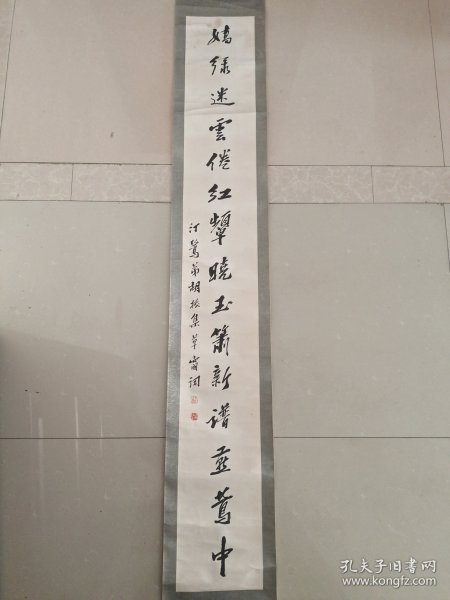 嬌綠迷雲倦紅顰曉玉簫新譜燕鶯中
汀鷺弟胡振集草窗词
孔夫子旧书网
www.kongfz.com